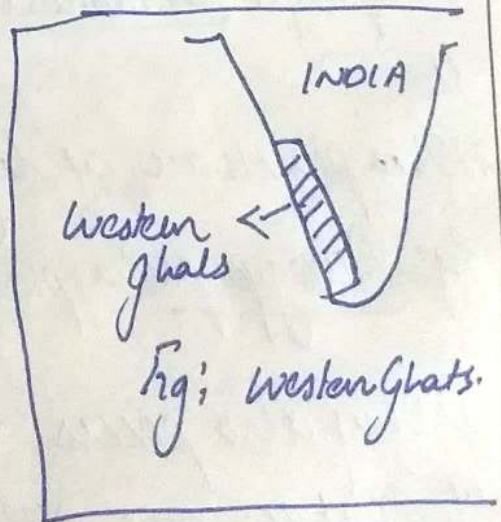 INDIA
Western
ghats
Fig: Western Ghats.